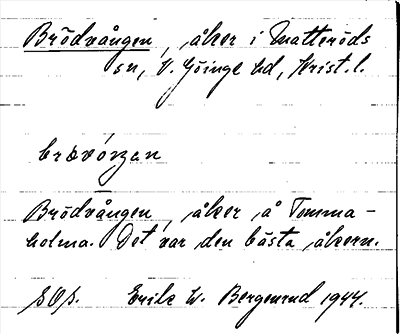 Brödvången, åker i Matteröds
sn, V. Göinge hd, Krist. l.
brœvóŋen
Brödvången, åker å Tomma-
holma. Det var den bästa åkern.
Erik W. Bergenrud 1944.